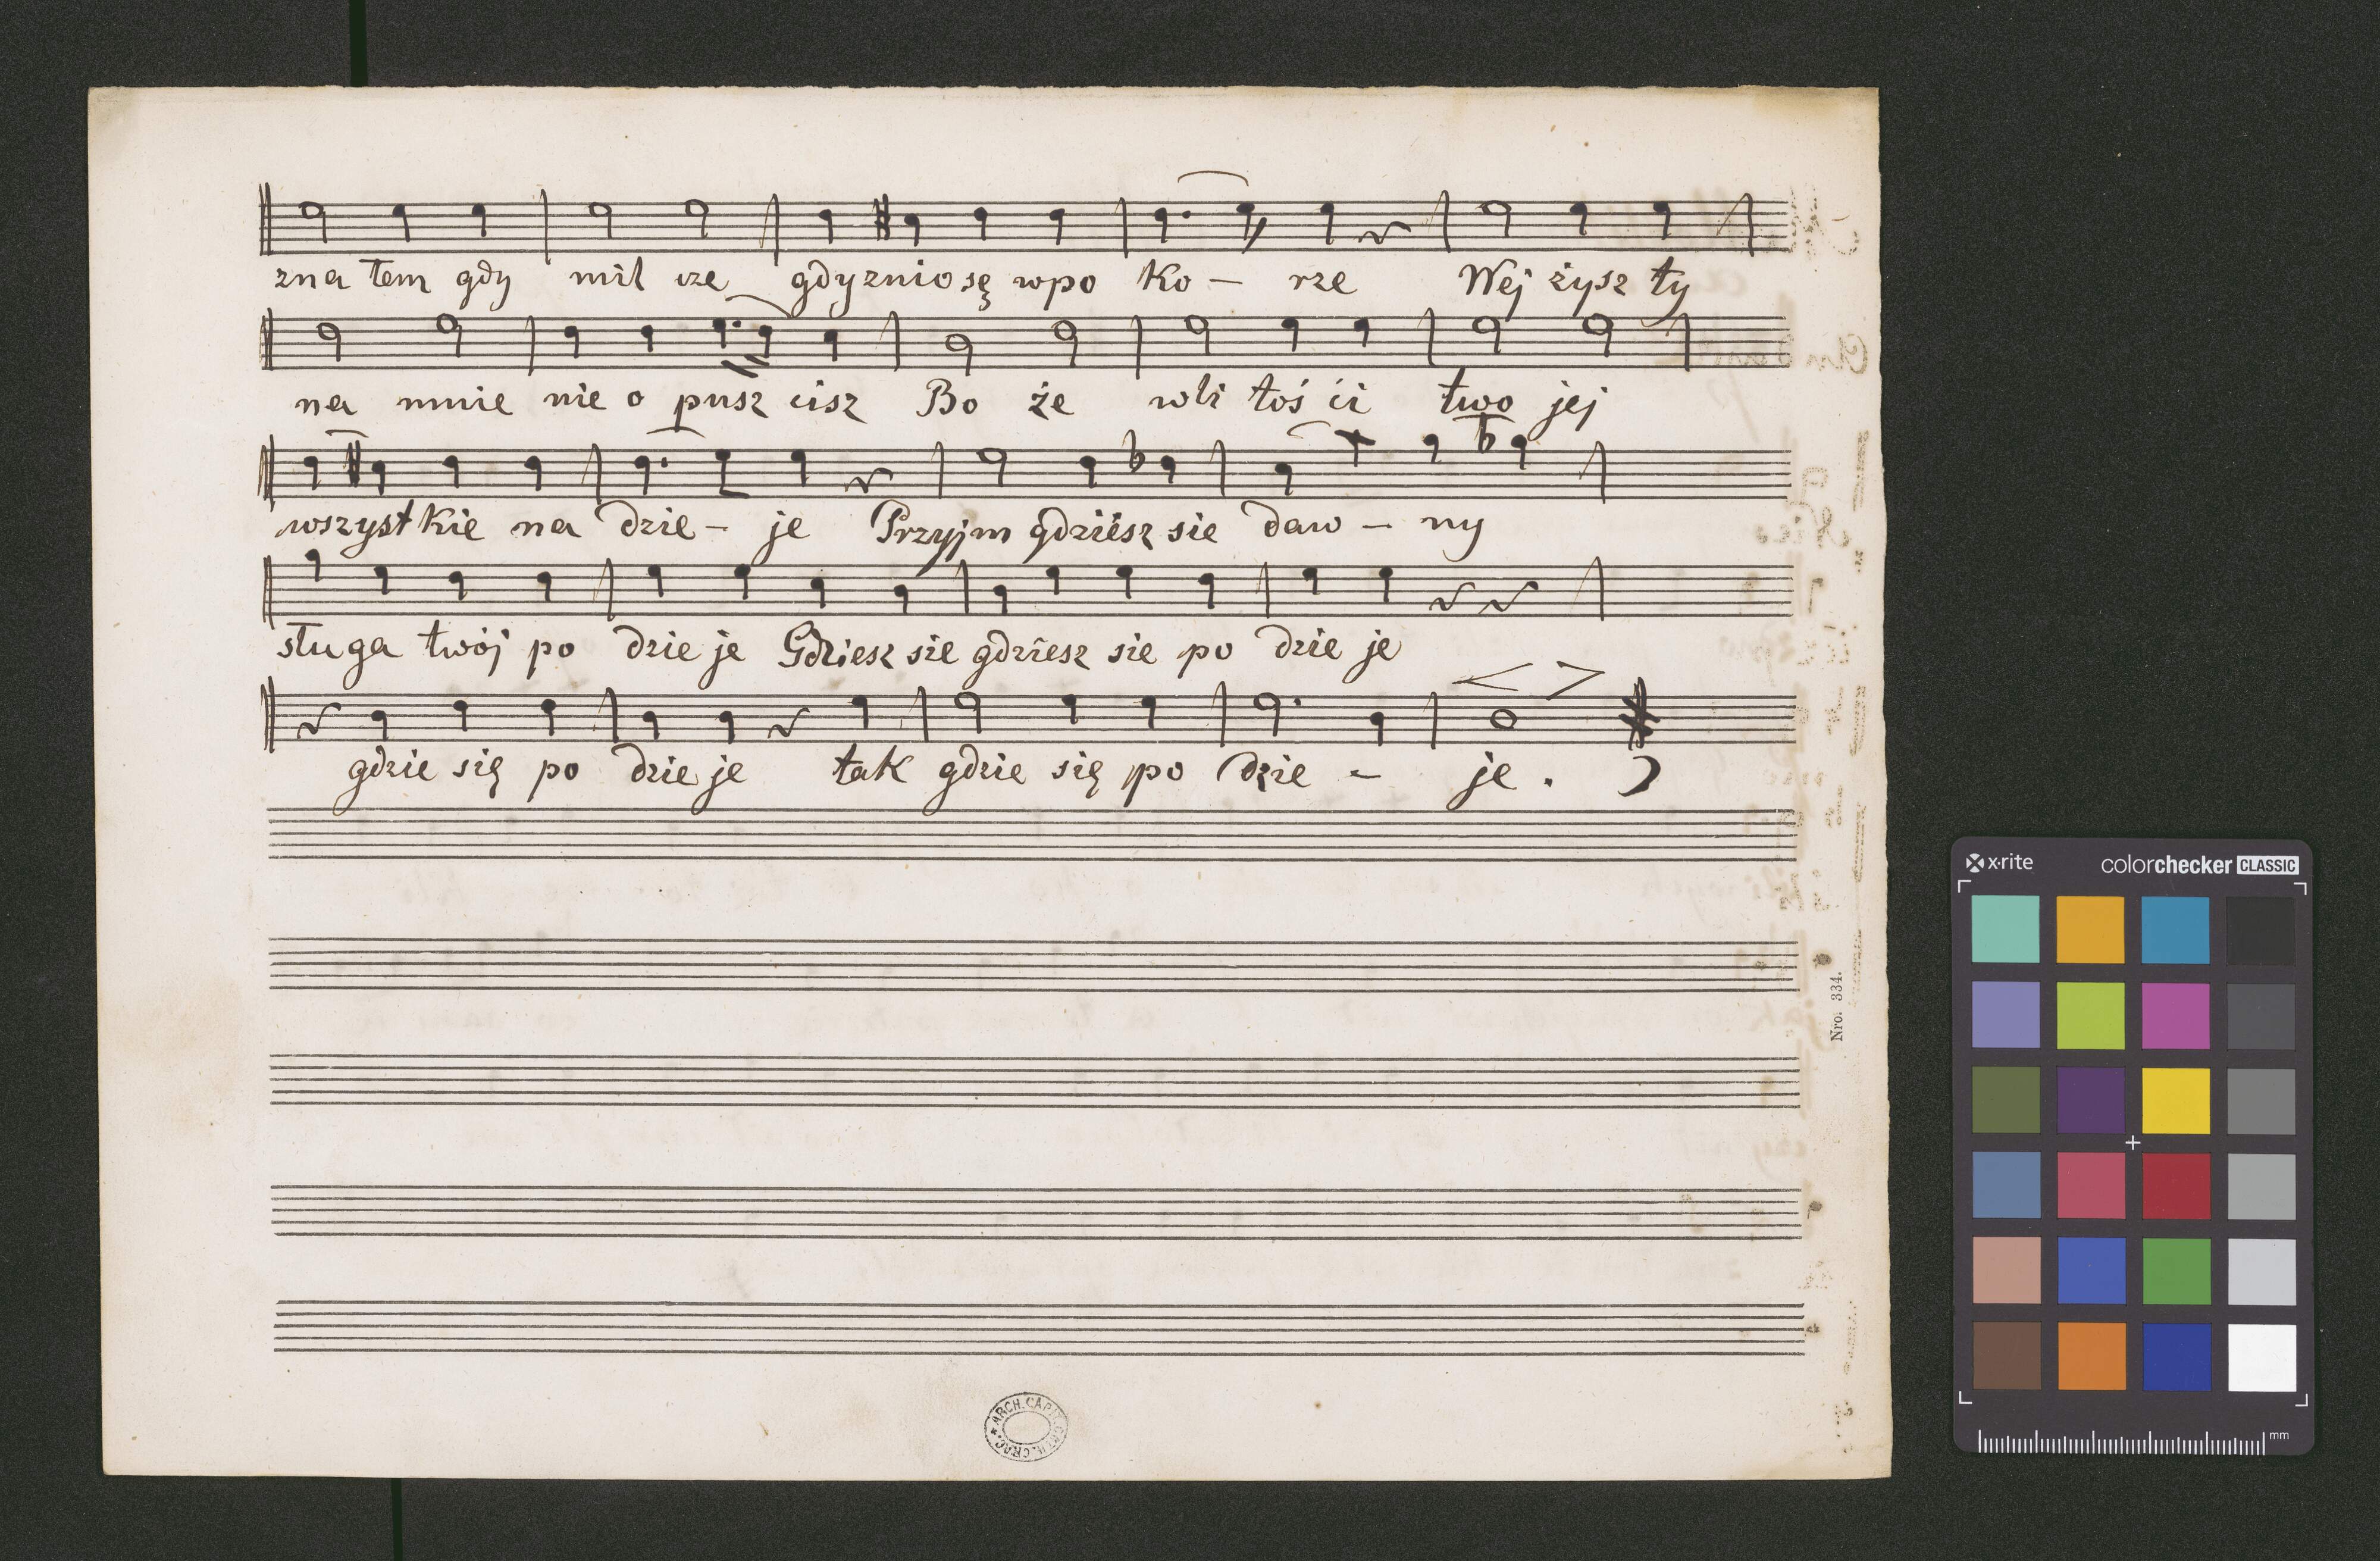 zna łem gdy mil cze gdy zniosę wpo ko – rze Wej żysz ty
na mnie nie o pusz cisz Bo że wli toś ći two jej
wszystkie na dzie – je Przyjm gdzieśz sie daw – ny
sługa twój po dzie je Gdziesz sie gdziesz sie po dzie je
gdzie się po dzie je tak gdzie się po dzie – je .
Nro. 334.
ARCH. CAPIT. CATH. CRAC.
x·rite colorchecker CLASSIC
mm